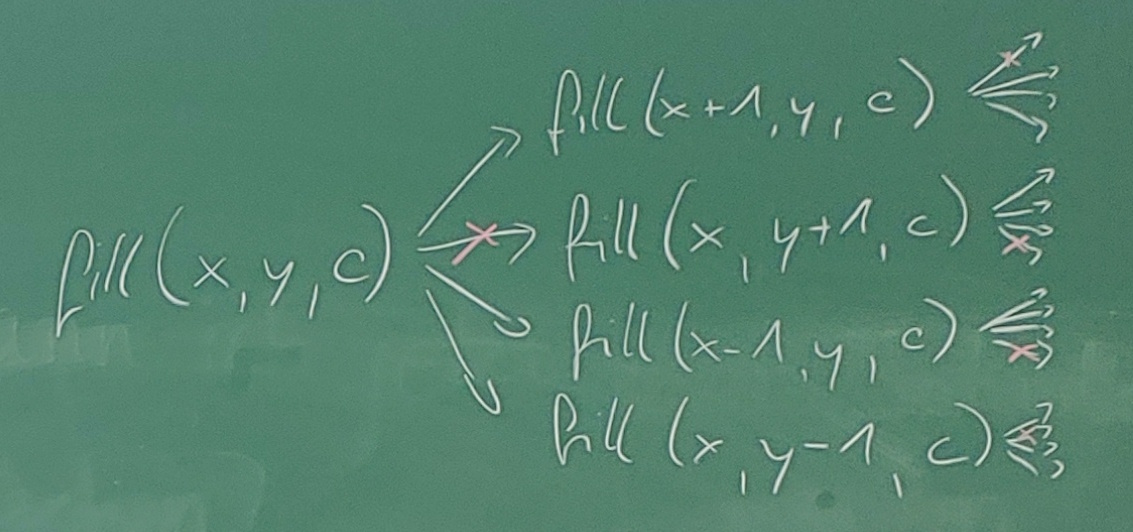 fill(x+1, y, c)
fill(x, y+1, c)
fill(x, y, c)
fill(x-1, y, c)
fill(x, y-1, c)